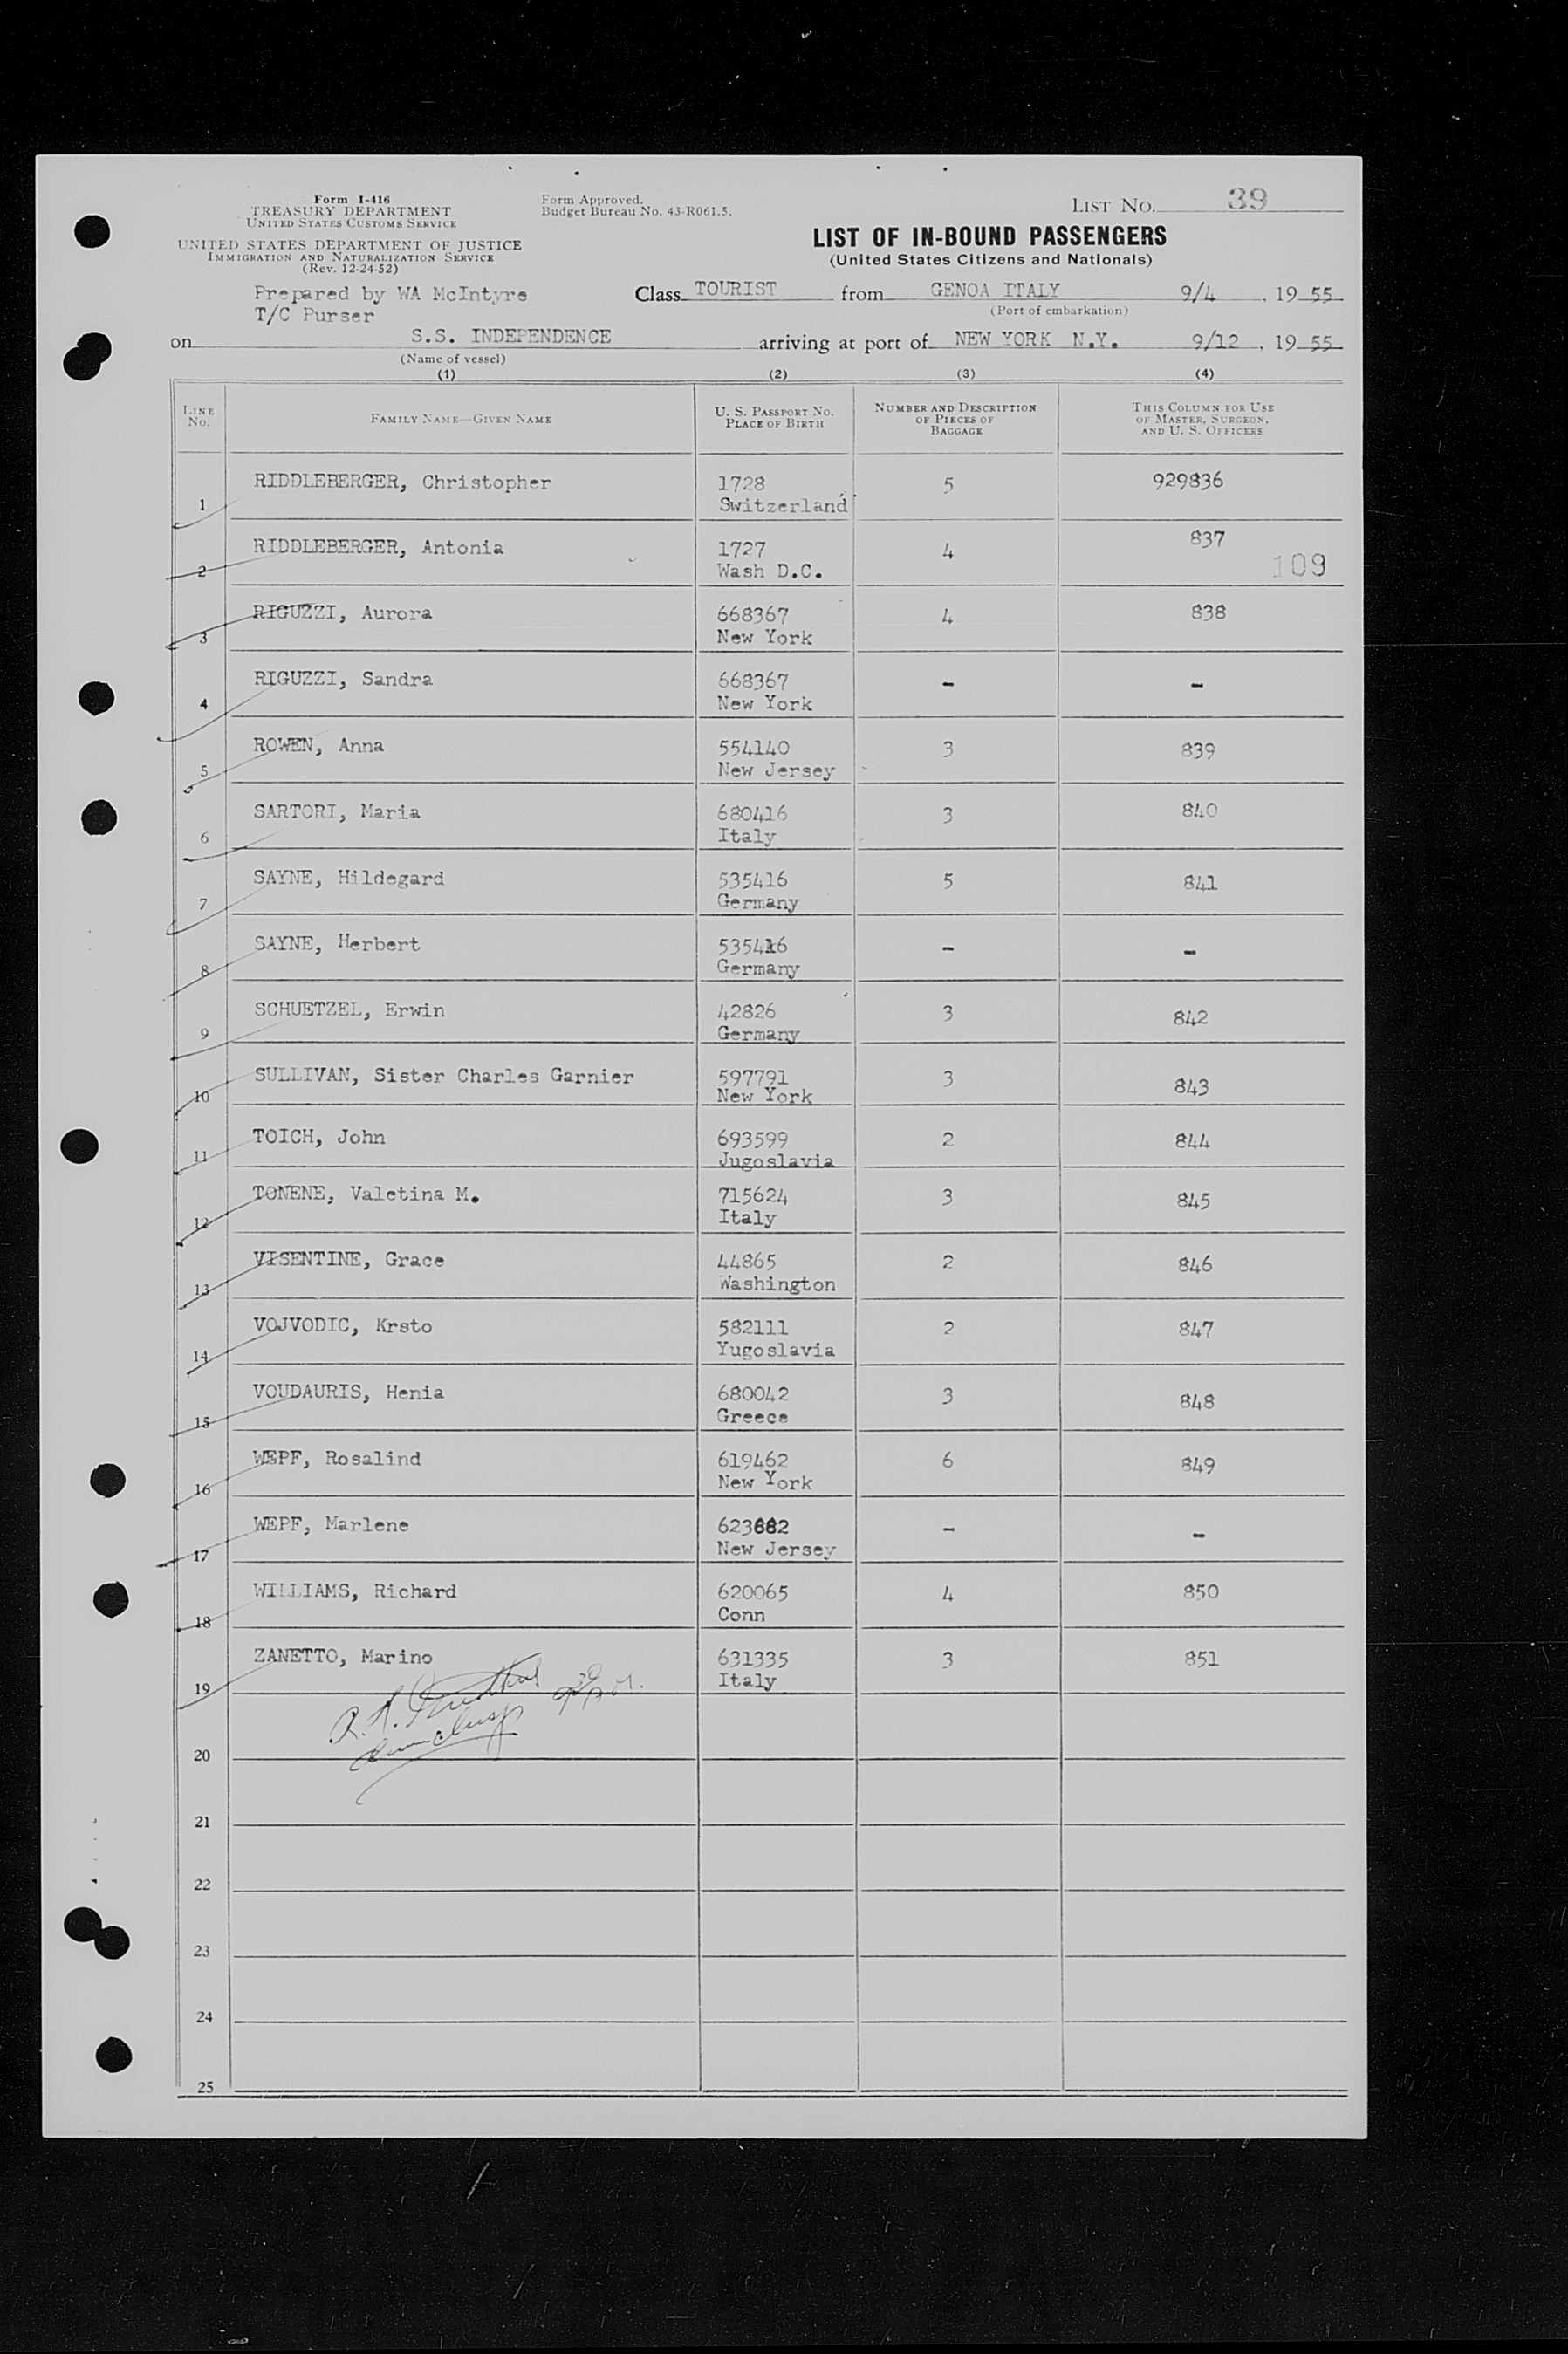 Form I-416
TREASURY DEPARTMENT
UNITED STATES CUSTOMS SERVICE
UNITED STATES DEPARTMENT OF JUSTICE
IMMIGRATION AND NATURALIZATION SERVICE
(Rev. 12-24-52)
Form Approved.
Budget Bureau No. 43-R061.5.
LIST NO. 39
LIST OF IN-BOUND PASSENGERS
(United States Citizens and Nationals)
Prepared by WA McIntyre
T/C Purser
Class TOURIST from GENOA ITALY 9/4, 1955
(Port of embarkation)
on S.S. INDEPENDENCE arriving at port of NEW YORK N.Y. 9/12, 1955
(Name of vessel)
(1) (2) (3) (4)
LINE NO. FAMILY NAME—GIVEN NAME U. S. PASSPORT NO. PLACE OF BIRTH NUMBER AND DESCRIPTION OF PIECES OF BAGGAGE THIS COLUMN FOR USE OF MASTER, SURGEON, AND U. S. OFFICERS
1 RIDDLEBERGER, Christopher 1728 5 929836
Switzerland
2 RIDDLEBERGER, Antonia 1727 4 837
Wash D.C. 109
3 RIGUZZI, Aurora 668367 4 838
New York
4 RIGUZZI, Sandra 668367 - -
New York
5 ROWEN, Anna 554140 3 839
New Jersey
6 SARTORI, Maria 680416 3 840
Italy
7 SAYNE, Hildegard 535416 5 841
Germany
8 SAYNE, Herbert 535416 - -
Germany
9 SCHUETZEL, Erwin 42826 3 842
Germany
10 SULLIVAN, Sister Charles Garnier 597791 3 843
New York
11 TOICH, John 693599 2 844
Jugoslavia
12 TONENE, Valetina M. 715624 3 845
Italy
13 VISENTINE, Grace 44865 2 846
Washington
14 VOJVODIC, Krsto 582111 2 847
Yugoslavia
15 VOUDAURIS, Henia 680042 3 848
Greece
16 WEPF, Rosalind 619462 6 849
New York
17 WEPF, Marlene 623682 - -
New Jersey
18 WILLIAMS, Richard 620065 4 850
Conn
19 ZANETTO, Marino 631335 3 851
Italy
20
21
22
23
24
25